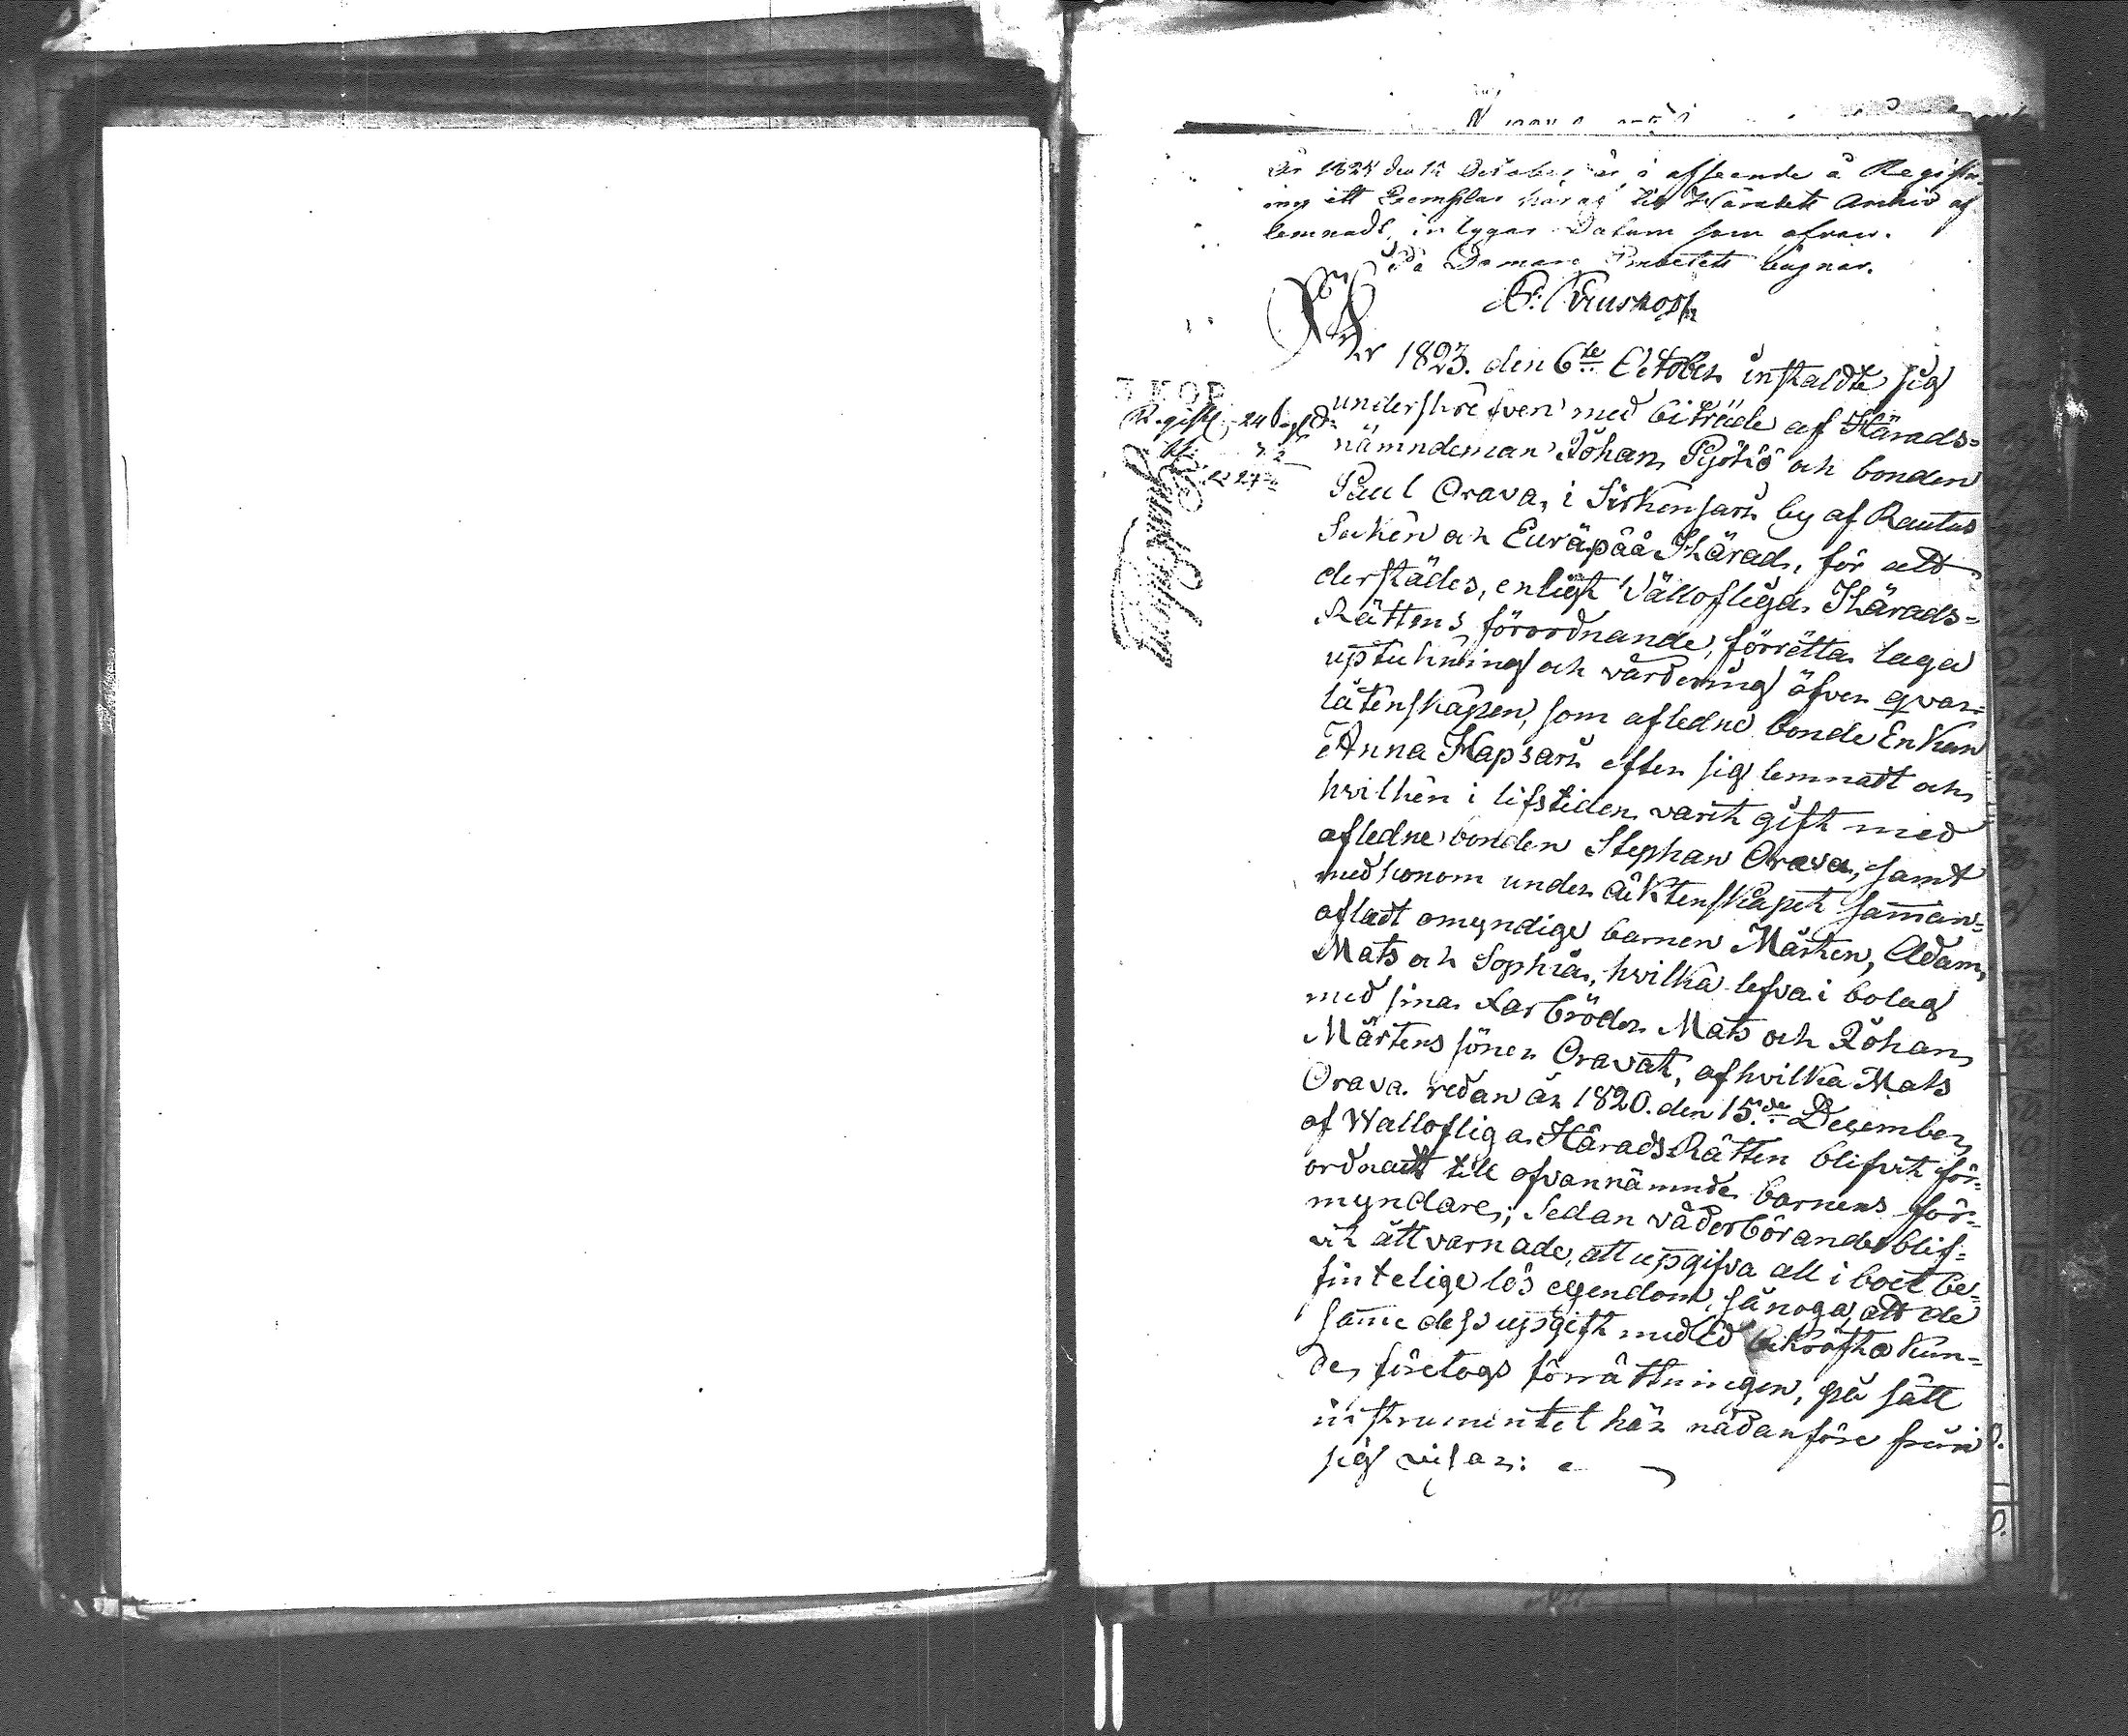 År 1824 den 12 October är i afseende å Registre-
ring ett Exemplar häraf till Häradets Archiv af
lemnadt, intygar Datum som ofvan.
På Domare Embetets vägnar.
År 1823. den 6te October instaldte sig
underskrefven med biträde af Härads=
nämndeman Johan Pyökiö och bonden
Paul Orava, i Sirkensari by af Rautus
Soken och Euräpää Härad, för att
derstädes, enligt Vällofliga Härads=
Rättens förordnande, förrätta laga
upteckning och värdering öfver qvar=
låtenskapen, som afledne bonde Enkan
Anna Kapsari efter sig lemnadt och
hvilken i lifstiden varit gift med
afledne bonden Stephan Orava, samt
med honom under äktenskapet samman=
afladt omyndige barnen Mårten, Adam,
Mats och Sophia, hvilka lefva i bolag
med sina Farbröder Mats och Johan
Mårtens söner Oravat, af hvilka Mats
Orava redan år 1820. den 15de December
af Wällofliga HäradsRätten blifvit för=
ordnadt till ofvannämnde barnens för=
myndare; Sedan väderbörande blif=
vit åttvarnade, att upgifva all i boet be=
fintelige lös egendom, så noga, att de
samme dess upgift med Ed bekräfta kun=
de, företogs förrättningen, på sätt
instrumentet här nädanföre
sig visar: